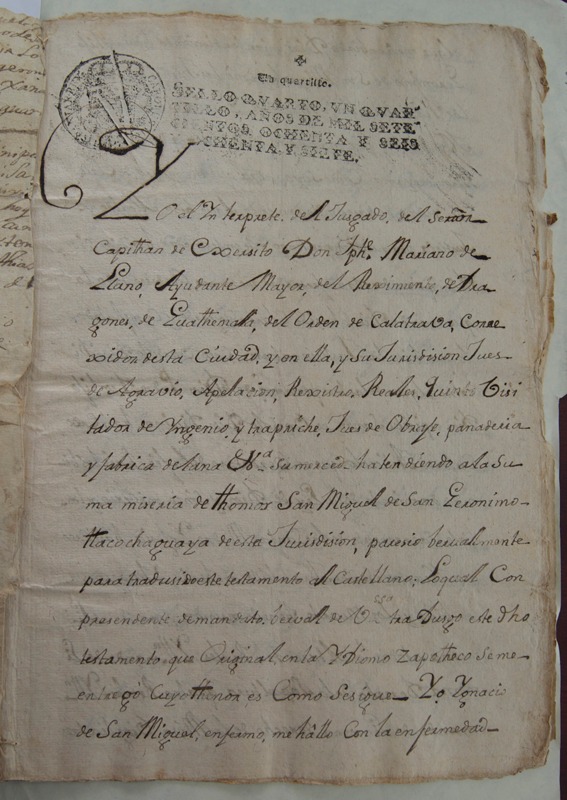 Un quartillo.
SELLO QVARTO, VN QVAR-
TILLO, AÑOS DE MIL SETE
CIENTOS, OCHENTA Y SEIS
Y OCHENTA, Y SIETE.
YO el Ynterprete. del Jusgado, del señor
Capithan de Exersito Don Jphe. Mariano de
Llano, Ayudante Mayor, del Reximiento, de Dra
gones, de Guathemala, del Orden de Calatrava, Corre
xidor desta Ciudad, y en ella, y su Jurisdision Jues
de Agravio, Apelacion, Rexistro, Reales, Quinto Visi
tador de Yngenio, y trapiche, Jues de Obraje, panaderia
y fabrica de lana Va su merced. hatendiendo a la Su
ma miseria de thomas San Miguel de San Geronimo
tlacochaguaya de esta Jurisdision, paresio berualmente
para tradusido este testamento al Castellano; Loqual Con
presendente demandato. berval de Vssa tradusgo este dho
testamento que Original, en la YDiomo Zapotheco Se me
entregó Cuyo thenor es Como Sesigue Yo Ygnacio
de San Miguel, enfermo, me hallo Con la enfermedad